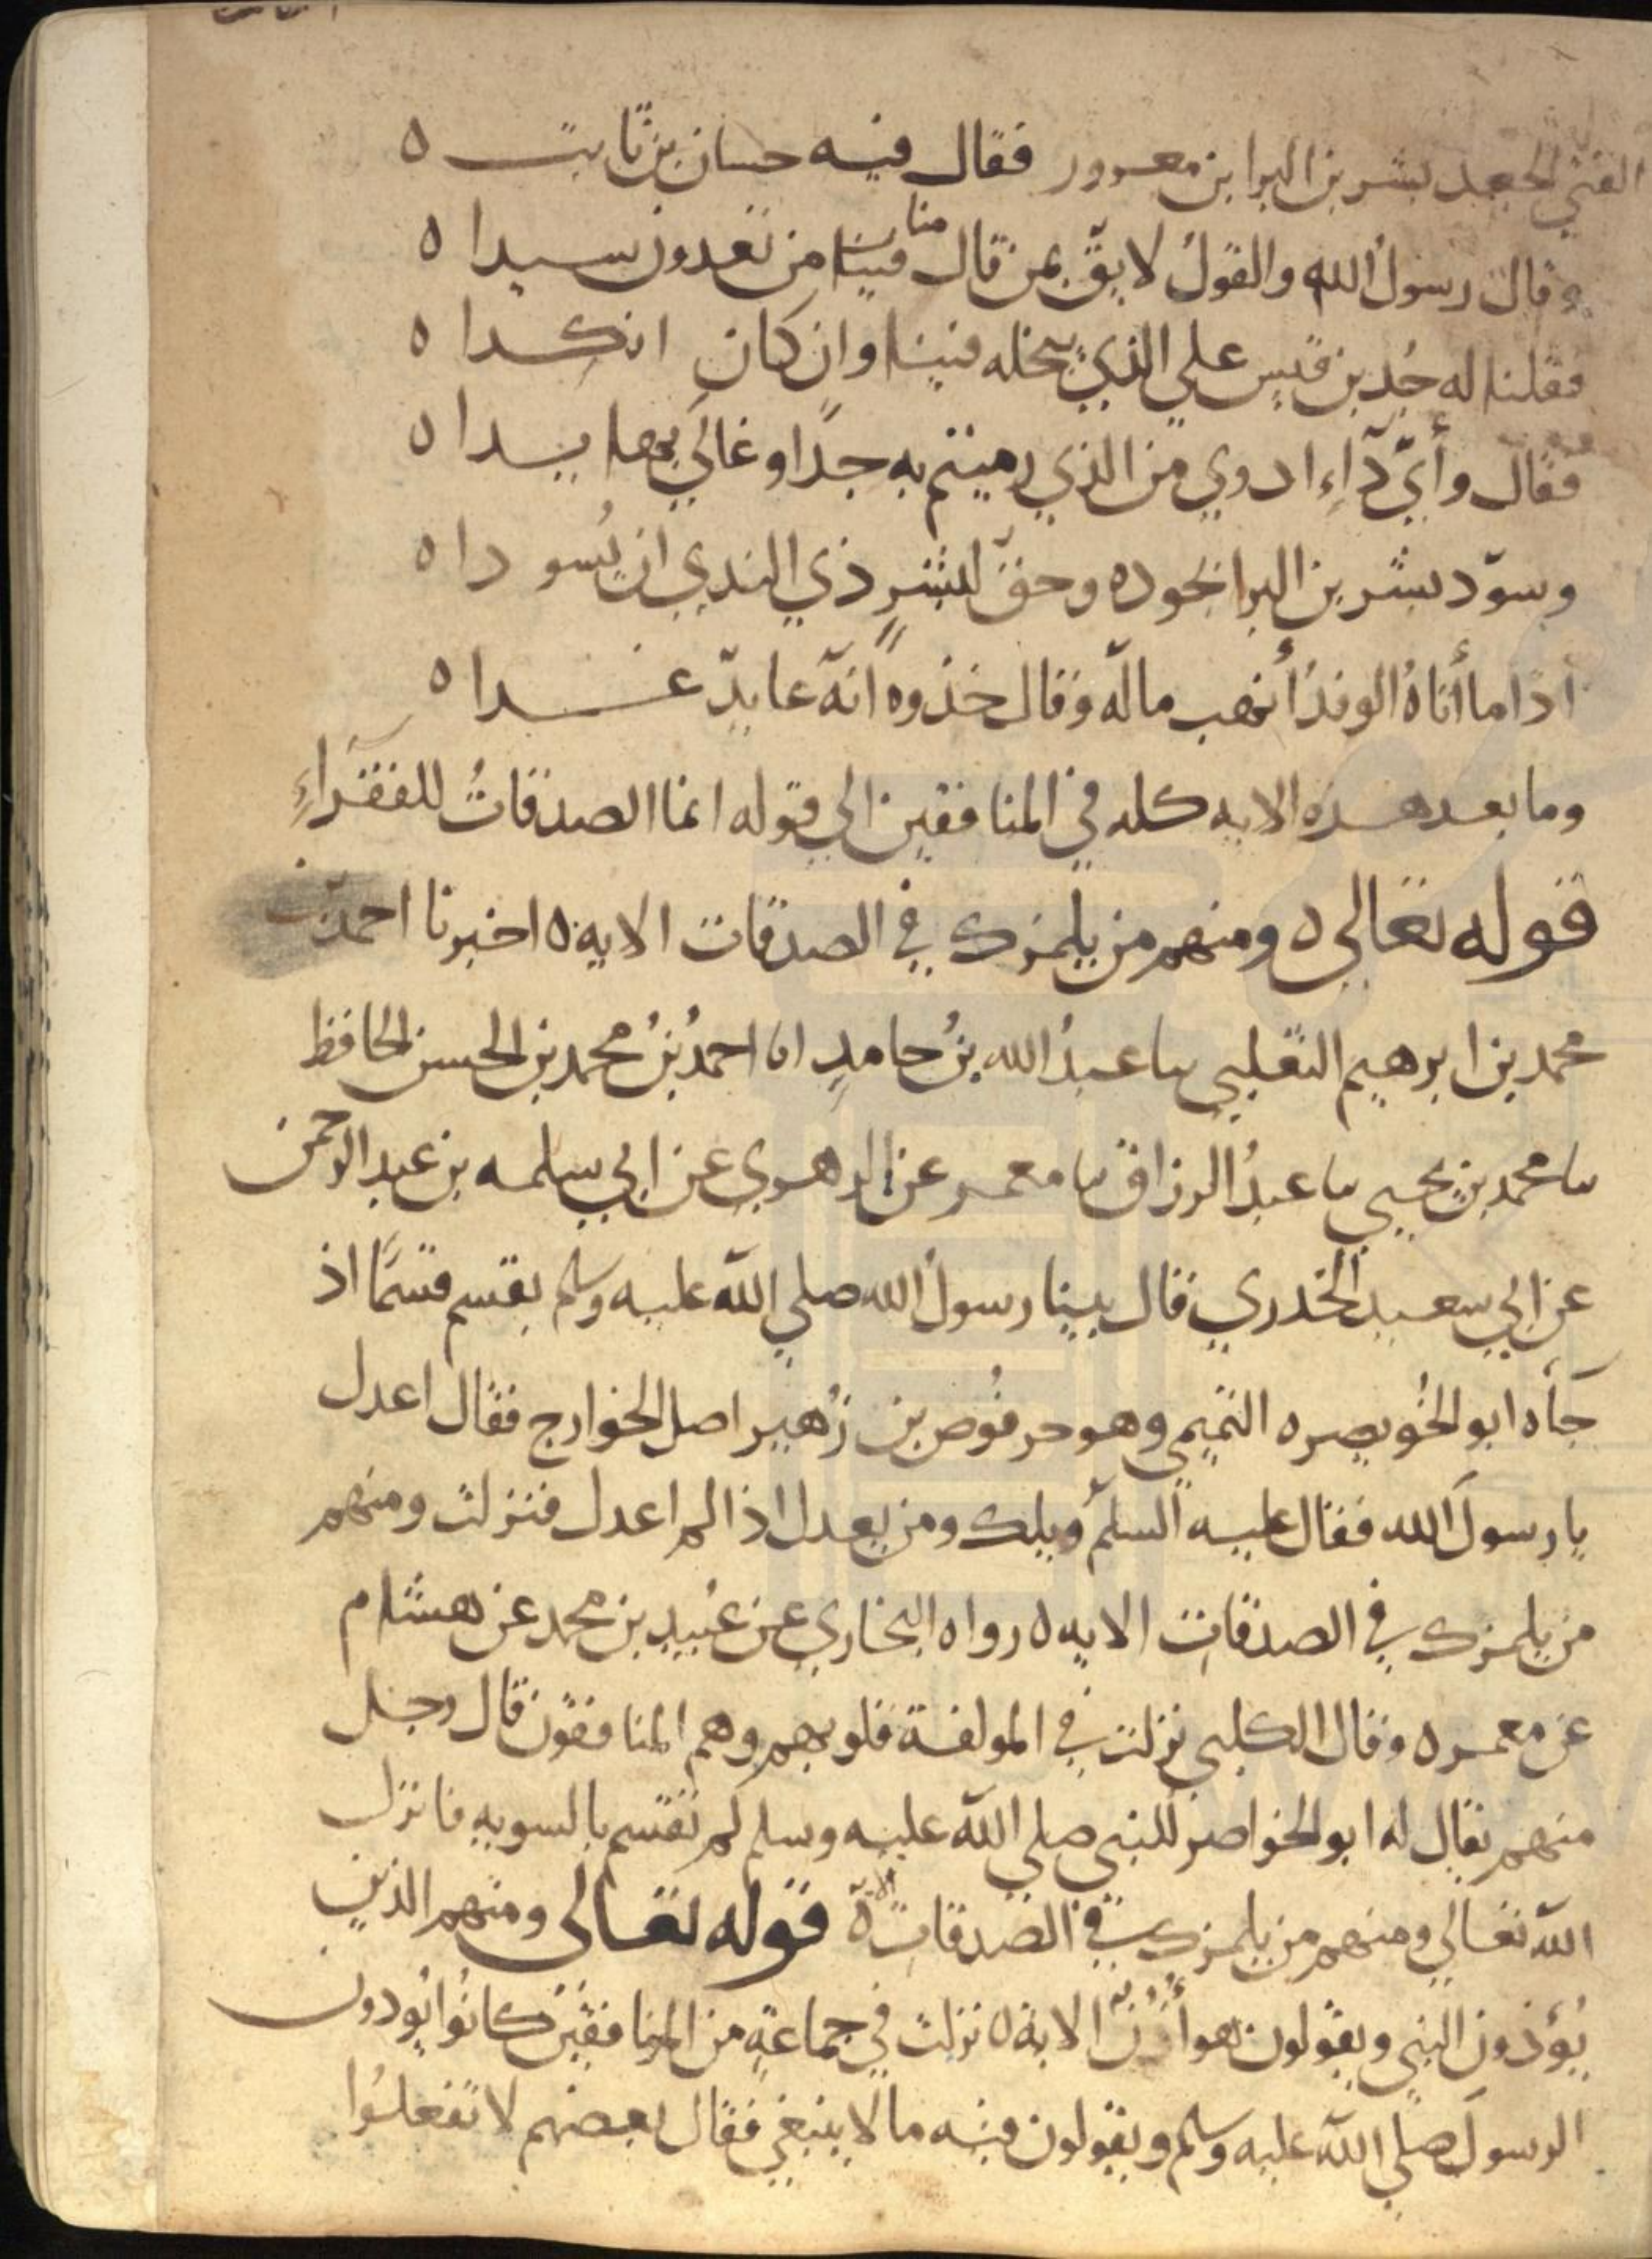 الفتي الجعد بشر بن البرا بن معرور فقال فيه حسان بن ثابت ه
وقال رسولُ الله والقولُ لاحِقٌ بمن قال منا من تعدون سيدا ه
فقلنا له جُدُ بن قيس علي الذي نبخله فينا وان كان انكدا ه
فقال وأيّ دآءِ ادوي من الذي رميتم به جدًا وغالَي بها يدا ه
وسوّد بشر بن البرا بجوده وحقّ لبشرٍ ذي الندي ان يُسودا ه
اذا ما أتاهُ الوفدُ أنهب ماله وقال خذوه انه عايدٌ غدا ه
وما بعد هذه الايه كله في المنافقين الي قوله انما الصدقاتُ للفقرآءِ
قوله تعالى ه ومنهم من يلمزك في الصدقات الايه ه اخبرنا احمد بن
محمد بن ابرهيم الثعلبي سا عبدُ الله بنُ حامدٍ انا احمدُ بنُ محمد بن الحسن الحافظ
سا محمد بن يحيي سا عبدُ الرزاق سا معمر عن الزهري عن ابي سلمه بن عبد الرحمن
عن ابي سعيد الخدري قال بينا رسولُ الله صلي الله عليه وسلم يقسم قسمًا اذ
جآه ابو الخُويصره التميمي وهو حرقُوص بن زُهير اصل الخوارج فقال اعدل
يا رسولَ الله فقال عليه السلم ويلك ومن يعدل اذا لم اعدل فنزلت ومنهم
من يلمزك في الصدقات الايه ه رواه البخاري عن عُبيد بن محمد عن هشام
عن معمر ه وقال الكلبي نزلت في المولفة قلوبهم وهم المنافقون قال رجل
منهم يقال له ابو الخواصر للنبي صلي الله عليه وسلم لم تقسم بالسويه فانزل
الله تعالي ومنهم من يلمزك في الصدقات الاية قوله تعالى ومنهم الذين
يُؤذون النبي ويقولون هو أُذُنٌ الاية ه نزلت في جماعةٍ من المنافقين كانُوا يُوذون
الرسولَ صلي الله عليه وسلم ويقولون فيه ما لا ينبغي فقال بعضهم لا تفعلُوا